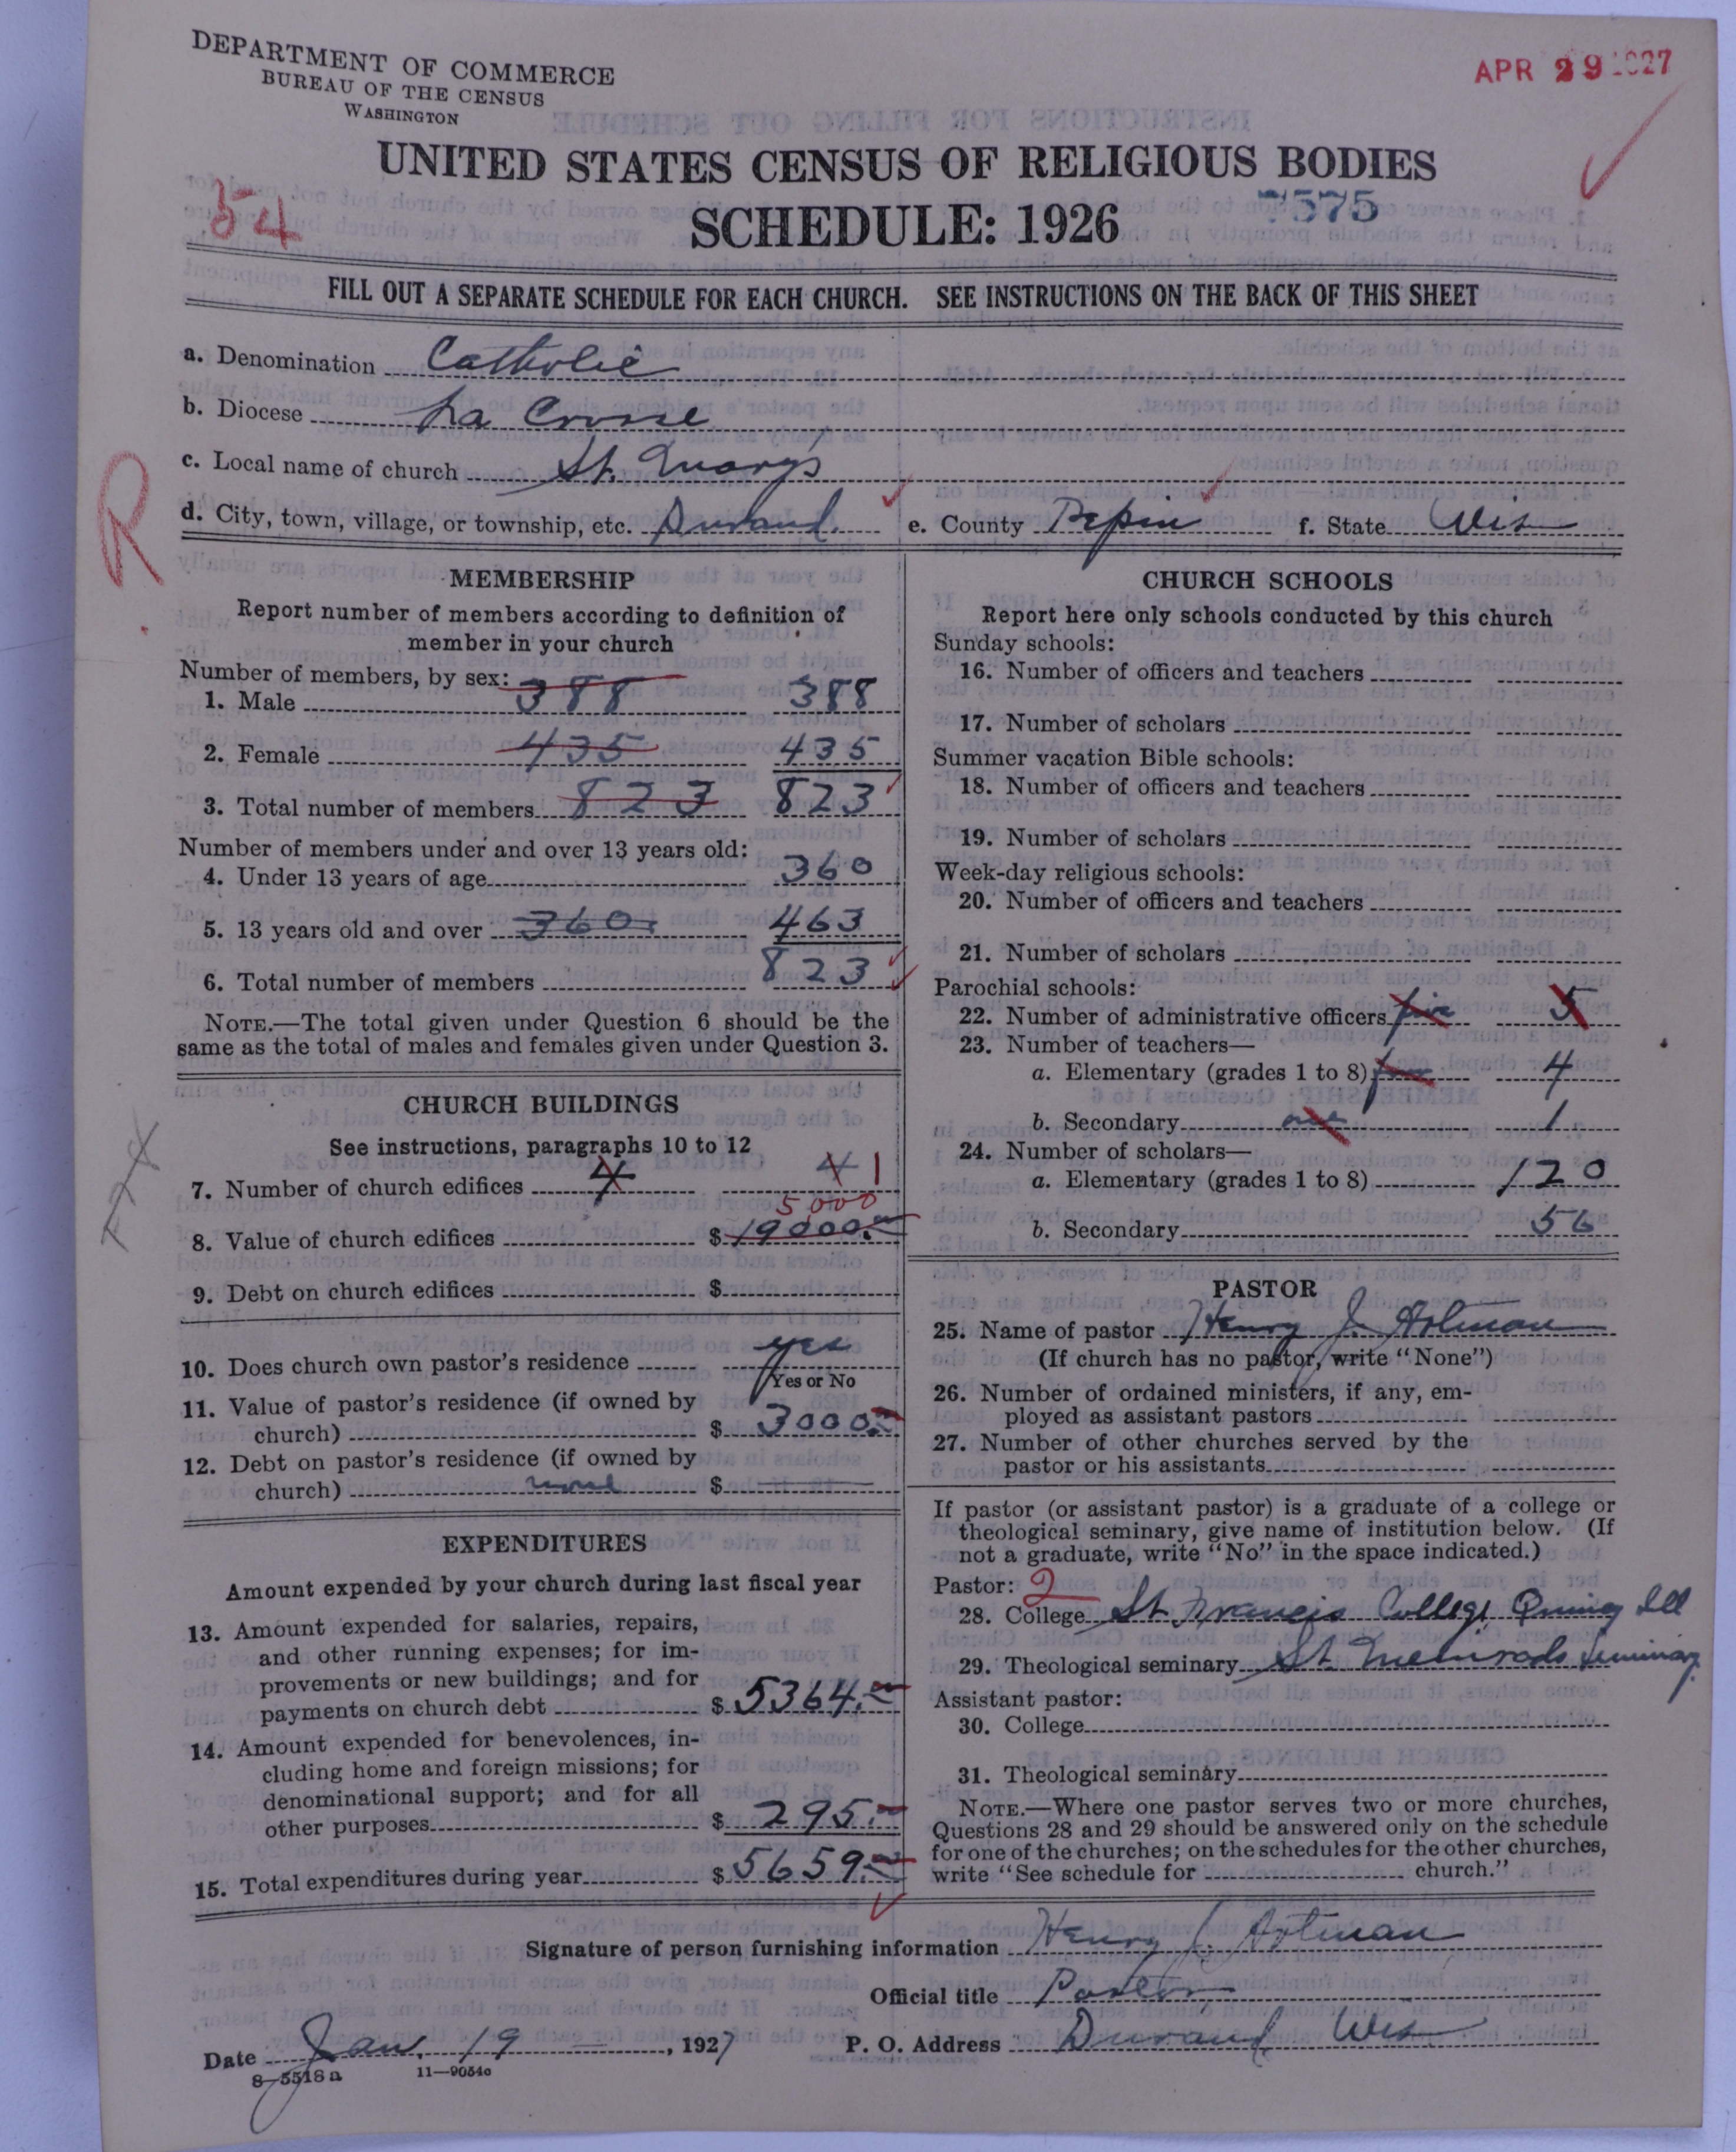 DEPARTMENT OF COMMERCE
BUREAU OF THE CENSUS
WASHINGTON
APR 29 1927
UNITED STATES CENSUS OF RELIGIOUS BODIES
54
SCHEDULE: 1926
7575
FILL OUT A SEPARATE SCHEDULE FOR EACH CHURCH. SEE INSTRUCTIONS ON THE BACK OF THIS SHEET
a. Denomination Catholic
b. Diocese La Crosse
c. Local name of church St. Mary's
R
d. City, town, village, or township, etc. Durand. e. County Pepin f. State Wis
MEMBERSHIP
Report number of members according to definition of
member in your church
Number of members, by sex:
1. Male 388 388
2. Female 435 435
3. Total number of members 823 823
Number of members under and over 13 years old:
4. Under 13 years of age 360
5. 13 years old and over 360 463
6. Total number of members 823
NOTE.—The total given under Question 6 should be the
same as the total of males and females given under Question 3.
CHURCH BUILDINGS
See instructions, paragraphs 10 to 12
7. Number of church edifices 4 4 1
5,000
8. Value of church edifices $ 19000.00
9. Debt on church edifices $
10. Does church own pastor's residence yes
Yes or No
11. Value of pastor's residence (if owned by
church) $ 3000.
12. Debt on pastor's residence (if owned by
church) none $
EXPENDITURES
Amount expended by your church during last fiscal year
13. Amount expended for salaries, repairs,
and other running expenses; for im-
provements or new buildings; and for
payments on church debt $ 5364.
14. Amount expended for benevolences, in-
cluding home and foreign missions; for
denominational support; and for all
other purposes $ 295.
15. Total expenditures during year $ 5659.
CHURCH SCHOOLS
Report here only schools conducted by this church
Sunday schools:
16. Number of officers and teachers
17. Number of scholars
Summer vacation Bible schools:
18. Number of officers and teachers
19. Number of scholars
Week-day religious schools:
20. Number of officers and teachers
21. Number of scholars
Parochial schools:
22. Number of administrative officers five 5
23. Number of teachers—
a. Elementary (grades 1 to 8) four 4
b. Secondary one 1
24. Number of scholars—
a. Elementary (grades 1 to 8) 120
b. Secondary 56
PASTOR
25. Name of pastor Henry J. Artman
(If church has no pastor, write "None")
26. Number of ordained ministers, if any, em-
ployed as assistant pastors
27. Number of other churches served by the
pastor or his assistants
If pastor (or assistant pastor) is a graduate of a college or
theological seminary, give name of institution below. (If
not a graduate, write "No" in the space indicated.)
Pastor: 2
28. College St Francis College Quincy Ill
29. Theological seminary St Meinrads Seminary
Assistant pastor:
30. College
31. Theological seminary
NOTE.—Where one pastor serves two or more churches,
Questions 28 and 29 should be answered only on the schedule
for one of the churches; on the schedules for the other churches,
write "See schedule for church."
Signature of person furnishing information Henry J. Artman
Official title Pastor
Date Jan. 19, 1927 P. O. Address Durand Wis
8-5518a 11—9054c